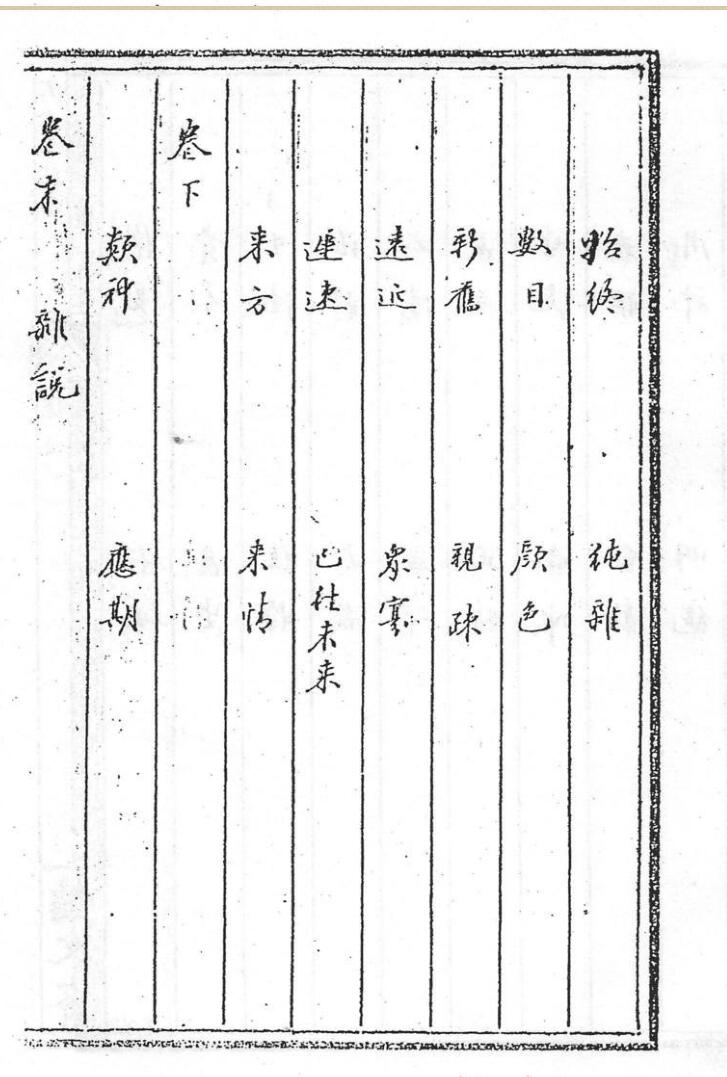 始終 純雜
數目 顔色
新舊 親疎
遠近 衆寡
遲速 已往未来
来方 来情
卷下
類神 應期
卷末 雜説